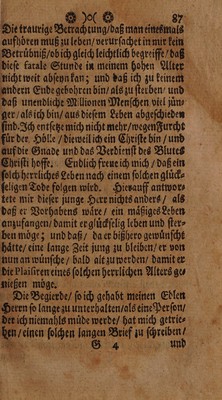 87
Die traurige Betrachtung / daß man einesmals
aufhören muß zu leben / verursachet in mir kein
Betrübniß / ob ich gleich leichtlich begreiffe / daß
diese fatale Stunde in meinem hohen Alter
nicht weit abseyn kan; und daß ich zu keinem
andern Ende gebohren bin / als zu sterben / und
daß unendliche Millionen Menschen viel jün-
ger / als ich bin / aus diesem Leben abgeschieden
sind. Ich entsetze mich nicht mehr / wegen Furcht
für der Hölle / dieweil ich ein Christe bin / und
auf die Gnade und das Verdienst des Blutes
Christi hoffe. Endlich freue ich mich / daß ein
solch herrliches Leben nach einem solchen glück-
seligen Tode folgen wird. Hierauff antwor-
tete mir dieser junge Herr nichts anders / als
daß er Vorhabens wäre / ein mäßiges Leben
anzufangen / damit er glückselig leben und ster-
ben möge; und daß / da er bißhero gewünscht
hätte / eine lange Zeit jung zu bleiben / er von
nun an wünsche / bald alt zu werden / damit er
die Plaisiren eines solchen herrlichen Alters ge-
niessen möge.
Die Begierde / so ich gehabt meinen Edlen
Herrn so lange zu unterhalten / als eine Person /
der ich niemahls müde werde / hat mich getrie-
ben / einen solchen langen Brief zu schreiben /
G 4 und